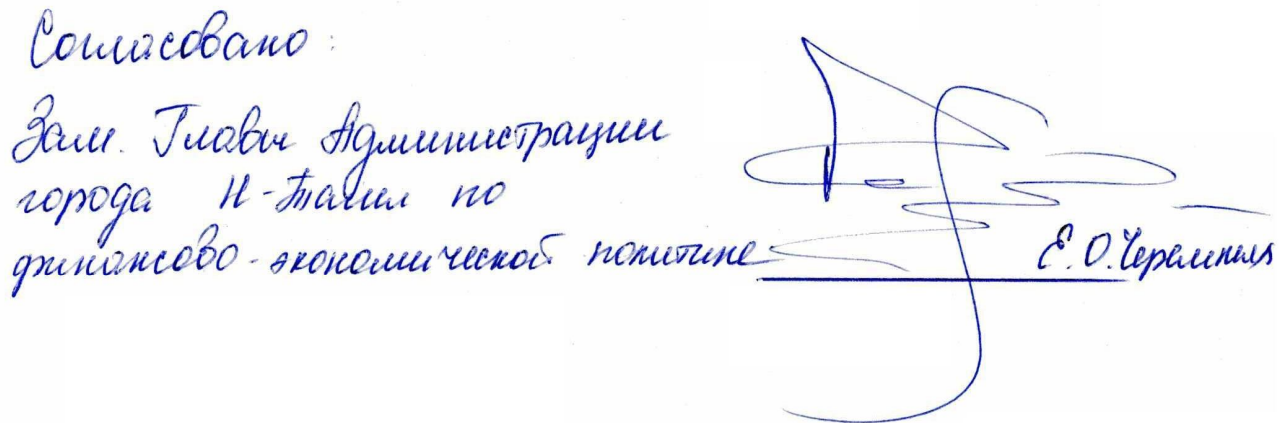 Согласовано:
Зам. Главы Администрации
города Н-Тагил по
финансово-экономической политике
Е.О. Черемных